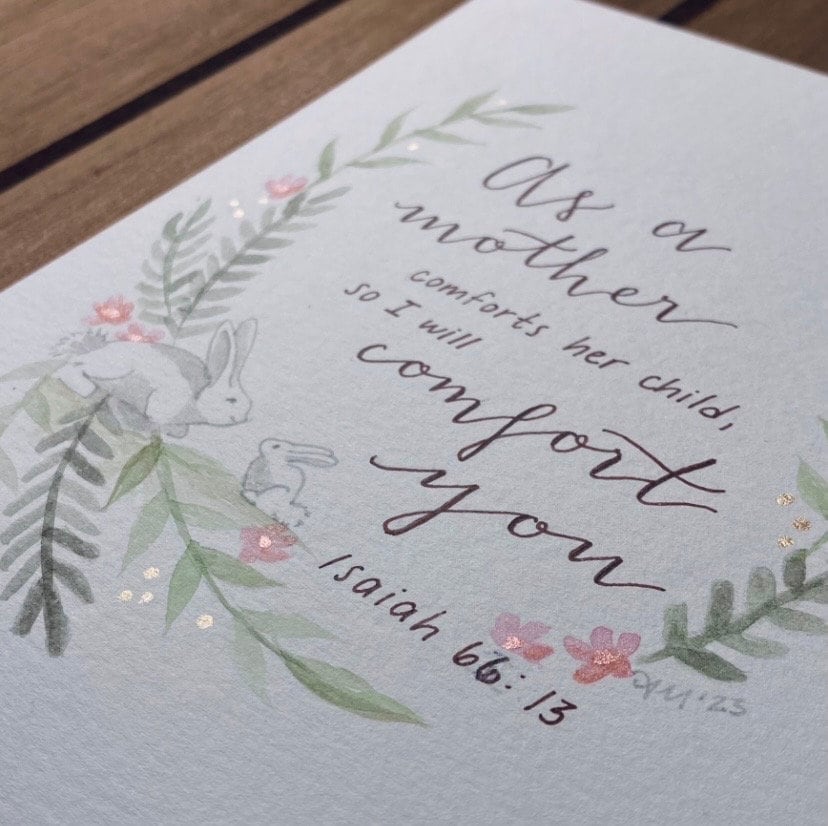 As a
mother
comforts her child,
so I will
comfort
you
Isaiah 66:13
'23